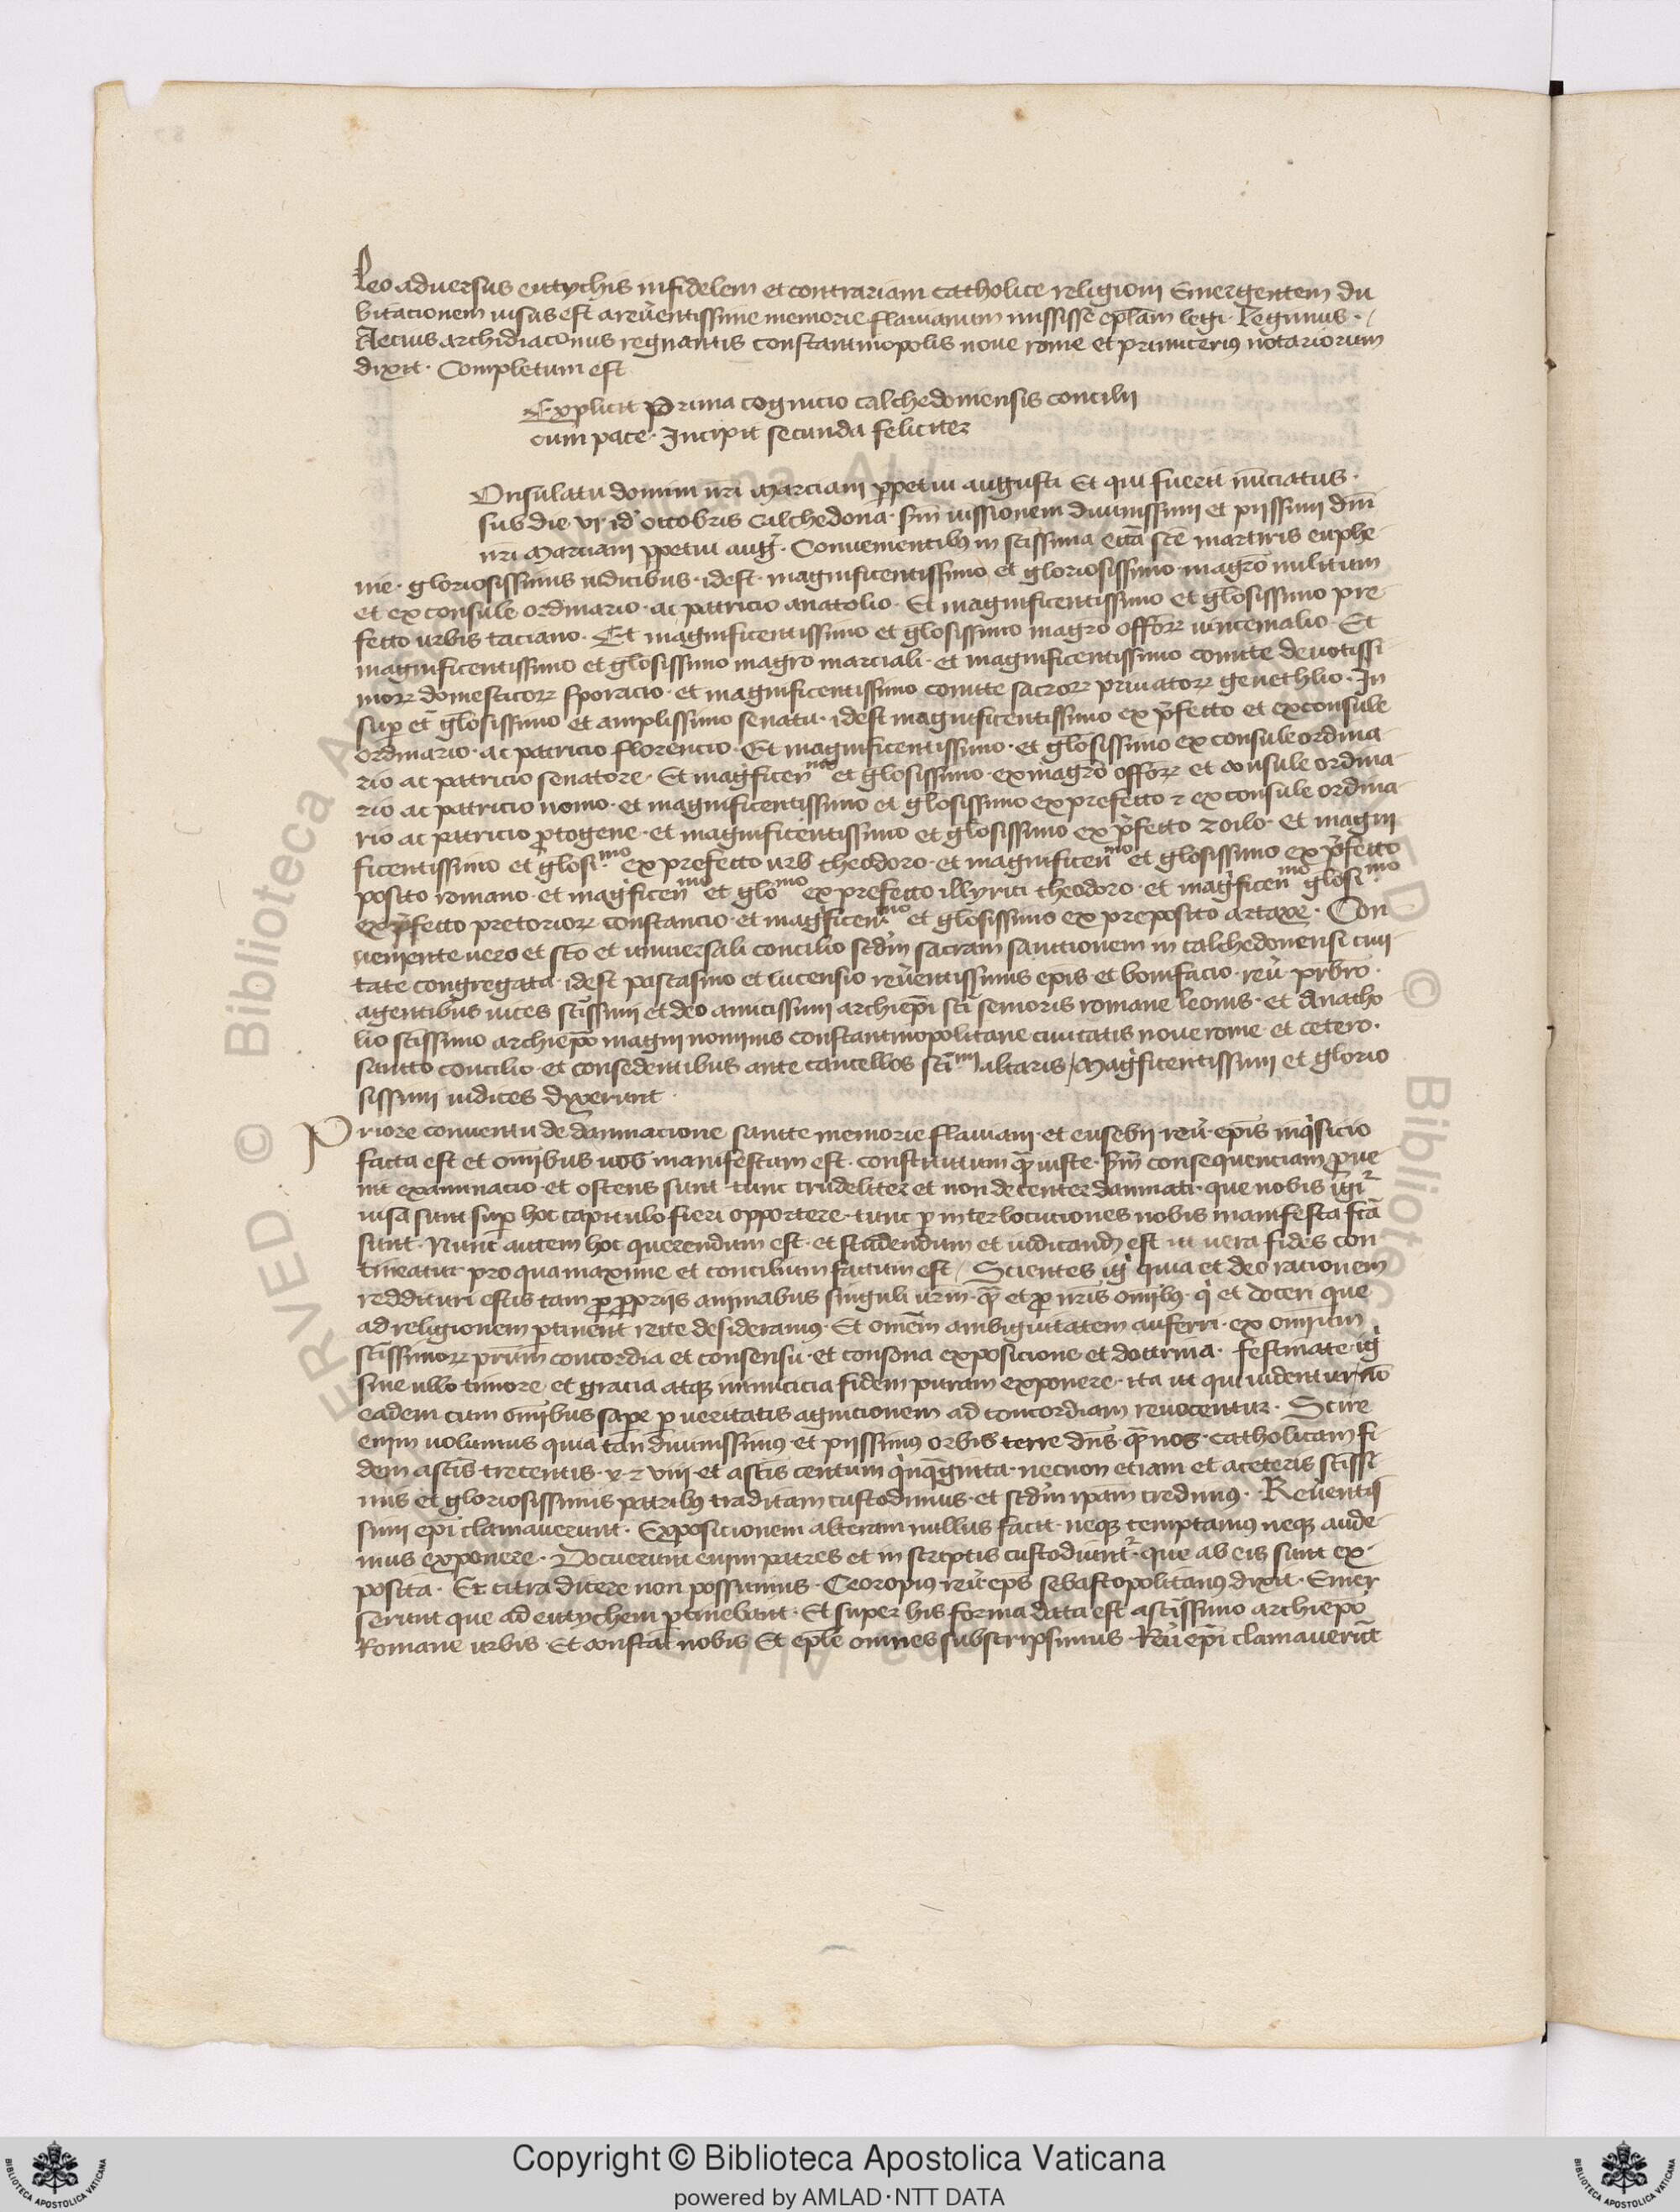 Leo adversus eutychis infidelem et contrariam catholice religioni Emergentem du
bitacionem uisus est a reuerentissime memorie flauianum misisse eplam legi. Legimus.
Aecius archidiaconus regnantis constantinopolis noue rome et primicerius notariorum
dixit. Completum est
Explicit Prima cognicio calchedonensis concilii
cum pace. Incipit secunda feliciter
Onsulatu domini nri Marciani ppetui augusti Et qui fuerit nunciatus.
sub die vi id' octobris calchedona. sm iussionem diuinissimi et piissimi dni
nri Marciani ppetui aug. Conuenientibus in scissima eccla sce martiris euphe
mie. gloriosissimis iudicibus. idest. magnificentissimo et gloriosissimo magro militum
et ex consule ordinario. ac patricio anatolio. Et magnificentissimo et glosissimo pre
fecto urbis taciano. Et magnificentissimo et glosissimo magro offorum uincemalio. Et
magnificentissimo et glosissimo magro marciali. et magnificentissimo comite deuotissi
morum domesticorum sporacio. et magnificentissimo comite sacrorum priuatorum genethlio. In
sup et glosissimo et amplissimo senatu. idest magnificentissimo ex pfecto et exconsule
ordinario. ac patricio florencio. Et magnificentissimo. et glosissimo ex consule ordina
rio ac patricio senatore. Et magficenmo et glosissimo ex magro offorum et consule ordina
rio ac patricio nomo. et magnificentissimo et glosissimo ex prefecto et ex consule ordina
rio ac patricio ptogene. et magnificentissimo et glosissimo ex pfecto zoilo. et magni
ficentissimo et glosi.mo ex prefecto urb theodoro. et magnificenmo et glosissimo ex pfecto
posito romano. et magficenmo et glomo ex prefecto illyrici theodoro. et magficenmo glosi mo
ex pfecto pretoriorum constancio. et magficen.mo et glosissimo ex preposito artaxe. Con
ueniente uero et sco et uniuersali concilio scdm sacram sanctionem in calchedonensi ciui
tate congregata. idest pascasino et lucensio reuentissimis epis et bonifacio. reu prbro.
agentibus uices scissimi et deo amicissimi archiepi sci senioris romane leonis. et Anatho
lio scissimo archiepo magni nominis constantinopolitane ciuitatis noue rome. et cetero.
sancto concilio. et consedentibus ante cancellos sci mi altaris / Magficentissimi et glorio
sissimi iudices dixerunt.
Priore conuentu de damnacione sancte memorie flauiani. et eusebii. reu. epis inqsicio
facta est et omibus uob manifestum est. constitutum q iuste. sm consequenciam proue
nit examinacio. et ostensi sunt tunc crudeliter et non decenter damnati. que nobis igir
uisa sunt sup hoc capitulo fieri opportere. tunc p interlocutiones nobis manifesta fca
sunt. Nunc autem hoc querendum est. et studendum et iudicand est ut uera fides con
tineatur pro qua maxime et concilium factum est / Scientes ig quia et deo racionem
reddituri estis tam p ppriis animabus singuli urm. q et p nris omibus. q et doceri que
ad religionem ptinent recte desideramus. Et omem ambiguitatem auferri. ex omnium
scissimorum prum concordia et consensu. et consona exposicione et doctrina. festinate ig
sine ullo timore. et gracia atque inimicicia fidem puram exponere. ita ut qui uidentur no
eadem cum omibus sape p ueritatis agnicionem ad concordiam reuocentur. Scire
enim uolumus quia tam diuinissimus. et piissimus orbis terre dns. q nos. catholicam fi
dem a scis trecentis. x. et viii. et a scis centum qnqginta. necnon etiam et a ceteris scissi
mis et gloriosissimis patribus traditam custodimus. et scdm ipam credimus. Reuentis
simi epi clamauerunt. Exposicionem alteram nullus facit. neque temptamus neque aude
mus exponere. Docuerunt enim patres et in scriptis custodiuntr. que ab eis sunt ex
posita. Et citra dicere non possumus. Cecropius reu. eps sebastopolitanus dixit. Emer
serunt que ad eutychem ptinebant. Et super his forma data est a scissimo archiepo
Romane urbis. Et constat nobis Et eple omnes subscripsimus. Reu epi clamauerut
Copyright © Biblioteca Apostolica Vaticana
powered by AMLAD·NTT DATA